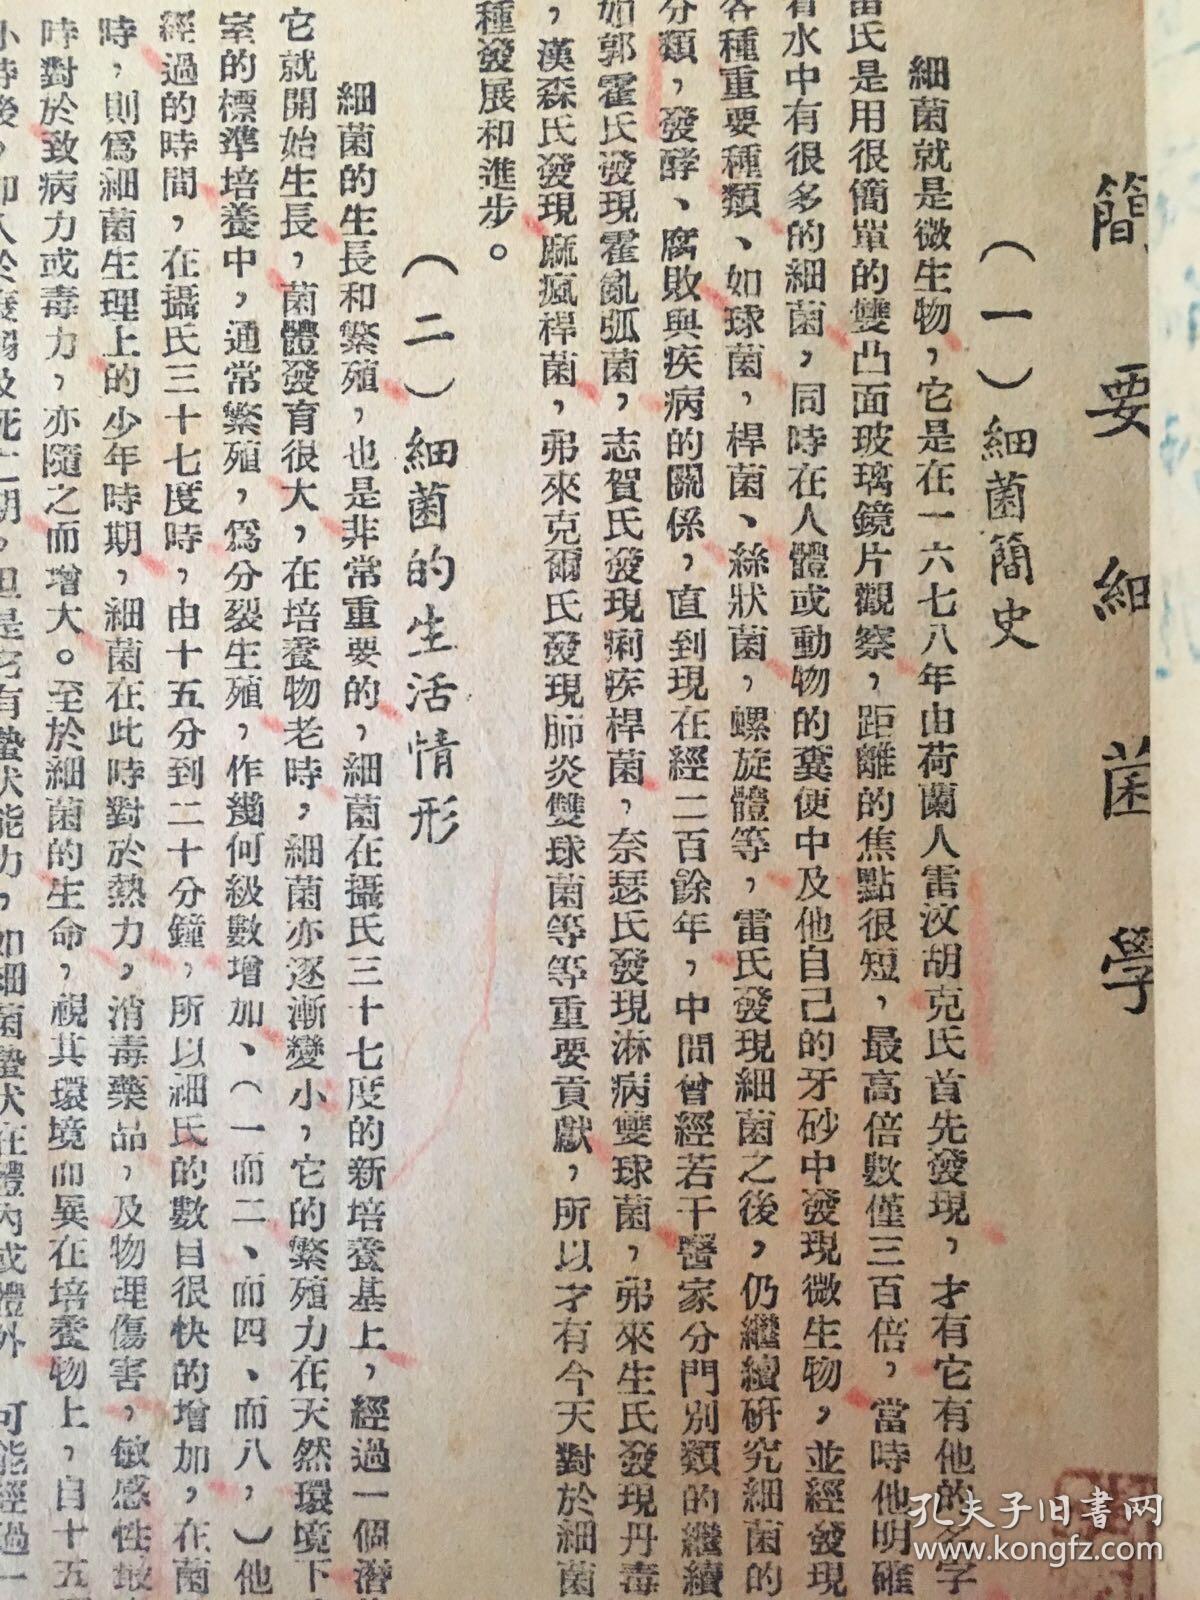 簡要細菌學
（一）細菌簡史
細菌就是微生物，它是在一六七八年由荷蘭人雷汶胡克氏首先發現，才有它有他的名字
雷氏是用很簡單的雙凸面玻璃鏡片觀察，距離的焦點很短，最高倍數僅三百倍，當時他明確
有水中有很多的細菌，同時在人體或動物的糞便中及他自己的牙砂中發現微生物，並經發現
各種重要種類、如球菌，桿菌、絲狀菌，螺旋體等，雷氏發現細菌之後，仍繼續研究細菌的
分類，發酵、腐敗與疾病的關係，直到現在經二百餘年，中間曾經若干醫家分門別類的繼續
如郭霍氏發現霍亂弧菌，志賀氏發現痢疾桿菌，奈瑟氏發現淋病雙球菌，弗來生氏發現丹毒
，漢森氏發現麻瘋桿菌，弗來克爾氏發現肺炎雙球菌等等重要貢獻，所以才有今天對於細菌
種發展和進步。
（二）細菌的生活情形
細菌的生長和繁殖，也是非常重要的，細菌在攝氏三十七度的新培養基上，經過一個潛
它就開始生長，菌體發育很大，在培養物老時，細菌亦逐漸變小，它的繁殖力在天然環境下
室的標準培養中，通常繁殖，爲分裂生殖，作幾何級數增加、（一而二、而四、而八，）他
經過的時間，在攝氏三十七度時，由十五分到二十分鐘，所以細氏的數目很快的增加，在菌
時，則爲細菌生理上的少年時期，細菌在此時對於熱力，消毒藥品，及物理傷害，敏感性最
時對於致病力或毒力，亦隨之而增大。至於細菌的生命，視其環境而異在培養物上，自十五
小時後，即入於衰弱及死亡期，但是它有蟄伏能力，如細菌蟄伏在體內或體外 可能經過一
孔夫子旧書网
www.kongfz.com